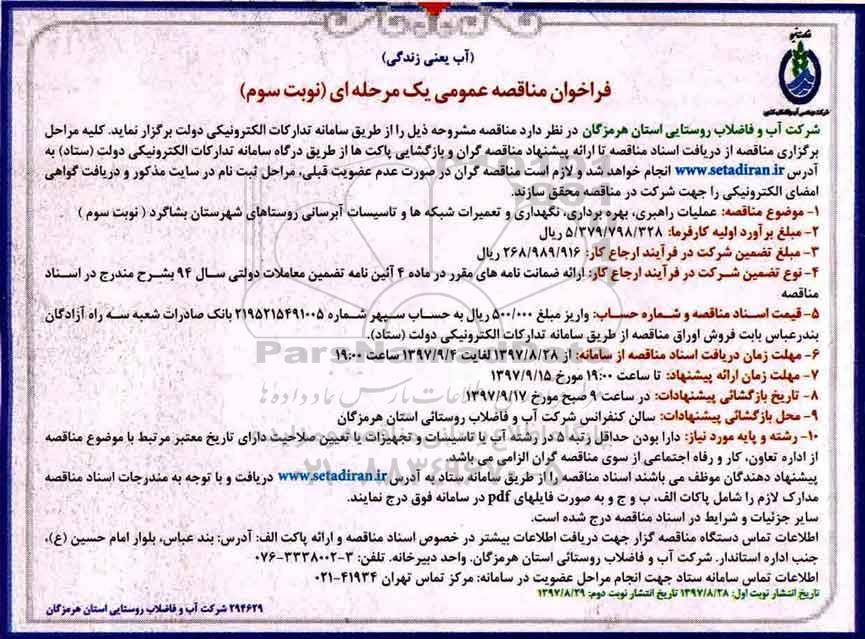 (آب یعنی زندگی)
فراخوان مناقصه عمومی یک مرحله ای (نوبت سوم)
شرکت آب و فاضلاب روستایی استان هرمزگان در نظر دارد مناقصه مشروحه ذیل را از طریق سامانه تدارکات الکترونیکی دولت برگزار نماید. کلیه مراحل
برگزاری مناقصه از دریافت اسناد مناقصه تا ارائه پیشنهاد مناقصه گران و بازگشایی پاکت ها از طریق درگاه سامانه تدارکات الکترونیکی دولت (ستاد) به
آدرس www.setadiran.ir انجام خواهد شد و لازم است مناقصه گران در صورت عدم عضویت قبلی، مراحل ثبت نام در سایت مذکور و دریافت گواهی
امضای الکترونیکی را جهت شرکت در مناقصه محقق سازند.
۱- موضوع مناقصه: عملیات راهبری، بهره برداری، نگهداری و تعمیرات شبکه ها و تاسیسات آبرسانی روستاهای شهرستان بشاگرد ( نوبت سوم )
۲- مبلغ برآورد اولیه کارفرما: ۵/۳۷۹/۷۹۸/۳۲۸ ریال
۳- مبلغ تضمین شرکت در فرآیند ارجاع کار: ۲۶۸/۹۸۹/۹۱۶ ریال
۴- نوع تضمین شرکت در فرآیند ارجاع کار: ارائه ضمانت نامه های مقرر در ماده ۴ آئین نامه تضمین معاملات دولتی سال ۹۴ بشرح مندرج در اسناد
مناقصه
۵- قیمت اسناد مناقصه و شماره حساب: واریز مبلغ ۵۰۰/۰۰۰ ریال به حساب سپهر شماره ۲۱۹۵۲۱۵۴۹۱۰۰۵ بانک صادرات شعبه سه راه آزادگان
بندرعباس بابت فروش اوراق مناقصه از طریق سامانه تدارکات الکترونیکی دولت (ستاد).
۶- مهلت زمان دریافت اسناد مناقصه از سامانه: از ۱۳۹۷/۸/۲۸ لغایت ۱۳۹۷/۹/۴ ساعت ۱۹:۰۰
۷- مهلت زمان ارائه پیشنهاد: تا ساعت ۱۹:۰۰ مورخ ۱۳۹۷/۹/۱۵
۸- تاریخ بازگشائی پیشنهادات: در ساعت ۹ صبح مورخ ۱۳۹۷/۹/۱۷
۹- محل بازگشائی پیشنهادات: سالن کنفرانس شرکت آب و فاضلاب روستائی استان هرمزگان
۱۰- رشته و پایه مورد نیاز: دارا بودن حداقل رتبه ۵ در رشته آب یا تاسیسات و تجهیزات یا تعیین صلاحیت دارای تاریخ معتبر مرتبط با موضوع مناقصه
از اداره تعاون، کار و رفاه اجتماعی از سوی مناقصه گران الزامی می باشد.
پیشنهاد دهندگان موظف می باشند اسناد مناقصه را از طریق سامانه ستاد به آدرس www.setadiran.ir دریافت و با توجه به مندرجات اسناد مناقصه
مدارک لازم را شامل پاکات الف، ب و ج و به صورت فایلهای pdf در سامانه فوق درج نمایند.
سایر جزئیات و شرایط در اسناد مناقصه درج شده است.
اطلاعات تماس دستگاه مناقصه گزار جهت دریافت اطلاعات بیشتر در خصوص اسناد مناقصه و ارائه پاکت الف: آدرس: بند عباس، بلوار امام حسین (ع)،
جنب اداره استاندار. شرکت آب و فاضلاب روستائی استان هرمزگان. واحد دبیرخانه. تلفن: ۳-۳۳۳۸۰۰۲-۰۷۶
اطلاعات تماس سامانه ستاد جهت انجام مراحل عضویت در سامانه: مرکز تماس تهران ۴۱۹۳۴-۰۲۱
تاریخ انتشار نوبت اول: ۱۳۹۷/۸/۲۸ تاریخ انتشار نوبت دوم: ۱۳۹۷/۸/۲۹
۲۹۴۶۲۹ شرکت آب و فاضلاب روستایی استان هرمزگان